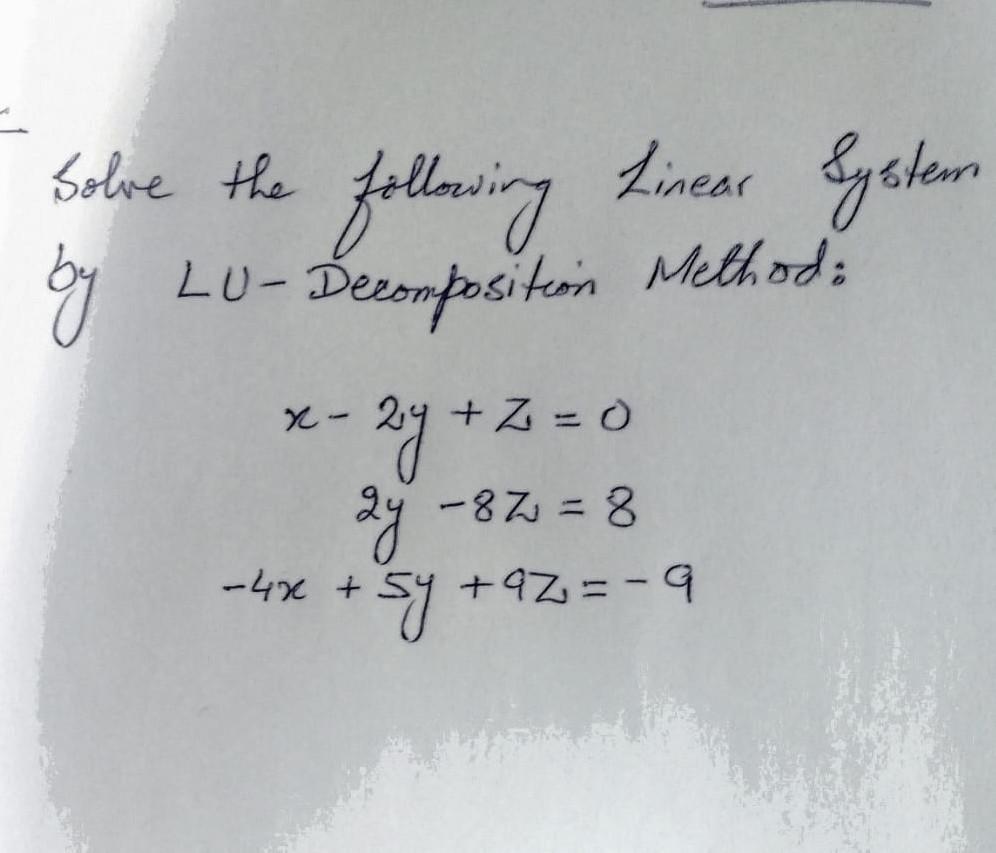 Solve the following Linear System
by LU-Decomposition Method:
x - 2y + z = 0
2y - 8z = 8
-4x + 5y + 9z = -9